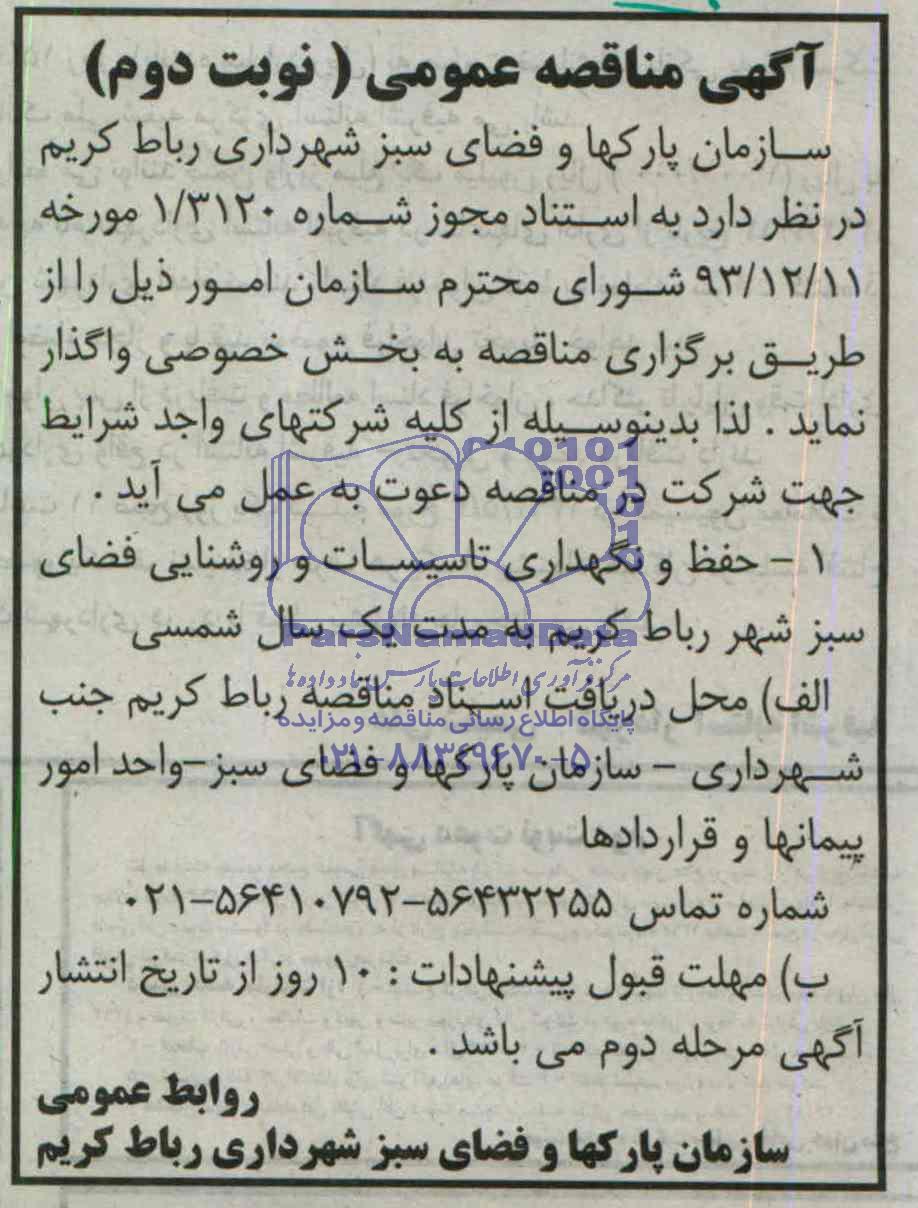 آگهی مناقصه عمومی ( نوبت دوم)
سازمان پارکها و فضای سبز شهرداری رباط کریم
در نظر دارد به استناد مجوز شماره ۱/۳۱۲۰ مورخه
۹۳/۱۲/۱۱ شورای محترم سازمان امور ذیل را از
طریق برگزاری مناقصه به بخش خصوصی واگذار
نماید . لذا بدینوسیله از کلیه شرکتهای واجد شرایط
جهت شرکت در مناقصه دعوت به عمل می آید .
۱ – حفظ و نگهداری تاسیسات و روشنایی فضای
سبز شهر رباط کریم به مدت یک سال شمسی
ParsNamadData
مرکز فرآوری اطلاعات پارس نماد داده ها
الف) محل دریافت اسناد مناقصه رباط کریم جنب
پایگاه اطلاع رسانی مناقصه و مزایده
شهرداری – سازمان پارکها و فضای سبز–واحد امور
۰۲۱–۸۸۳۴۹۶۷۰–۵
پیمانها و قراردادها
شماره تماس ۵۶۴۳۲۲۵۵–۵۶۴۱۰۷۹۲–۰۲۱
ب) مهلت قبول پیشنهادات : ۱۰ روز از تاریخ انتشار
آگهی مرحله دوم می باشد .
روابط عمومی
سازمان پارکها و فضای سبز شهرداری رباط کریم